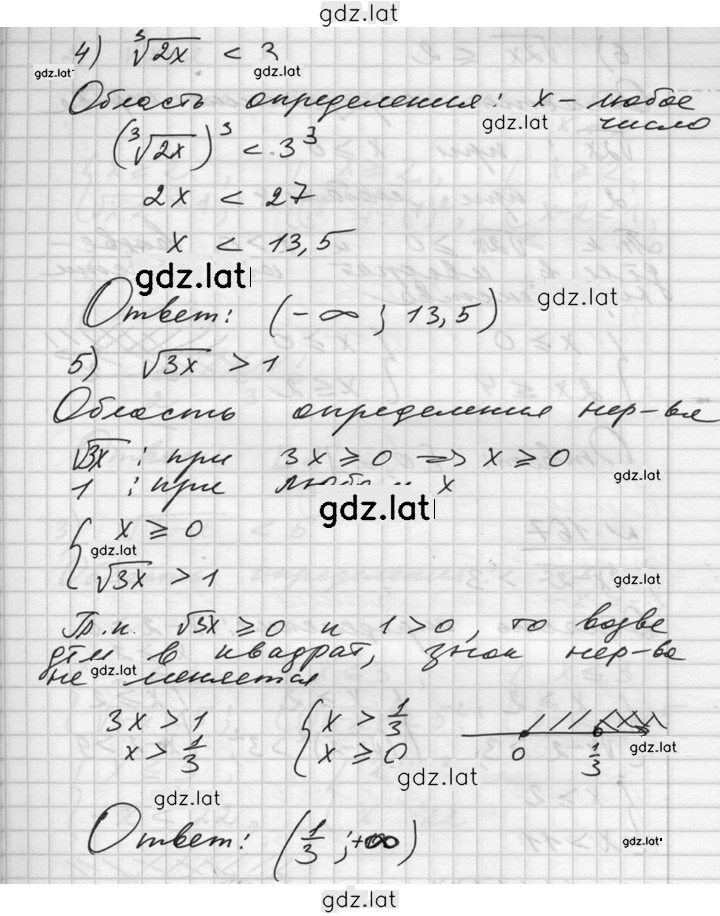 gdz.lat
4) ∛2x < 3
gdz.lat gdz.lat
Область определения: x – любое
gdz.lat число
(∛2x)³ < 3³
2x < 27
x < 13,5
gdz.lat gdz.lat
Ответ: (-∞; 13,5)
5) √3x > 1
Область определения нер-ва
√3x : при 3x ≥ 0 => x ≥ 0
gdz.lat
1 : при x
gdz.lat
{ x ≥ 0
gdz.lat
{ √3x > 1
gdz.lat
Т.к. √3x ≥ 0 и 1 > 0, то возве
дём в квадрат, знак нер-ва
gdz.lat
не меняется
3x > 1 { x > 1/3
x > 1/3 { x ≥ 0 0 1/3
gdz.lat
gdz.lat
gdz.lat
Ответ: (1/3; +∞)
gdz.lat
gdz.lat